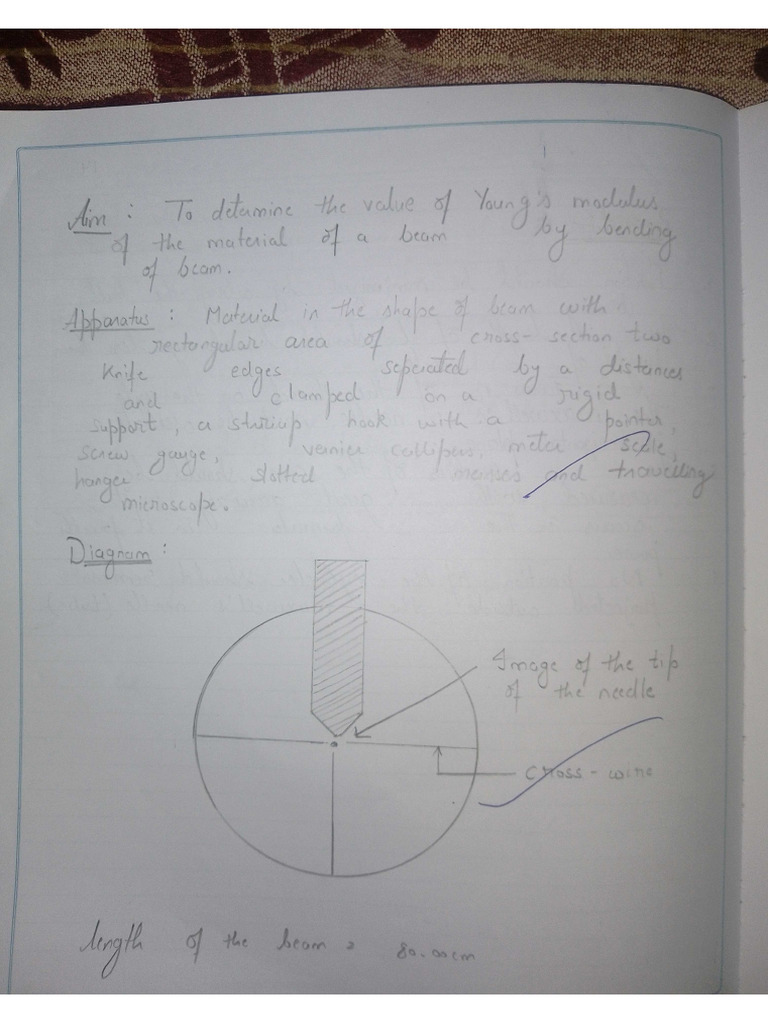 1
Aim : To determine the value of Young's modulus
of the material of a beam by bending
of beam.
Apparatus : Material in the shape of beam with
rectangular area of cross-section two
Knife edges seperated by a distances
and clamped on a rigid
support, a stirrup hook with a pointer,
screw gauge, vernier callipers, meter scale,
hanger slotted masses and travelling
microscope.
Diagram :
Image of the tip
of the needle
Cross-wire
length of the beam = 80.00cm